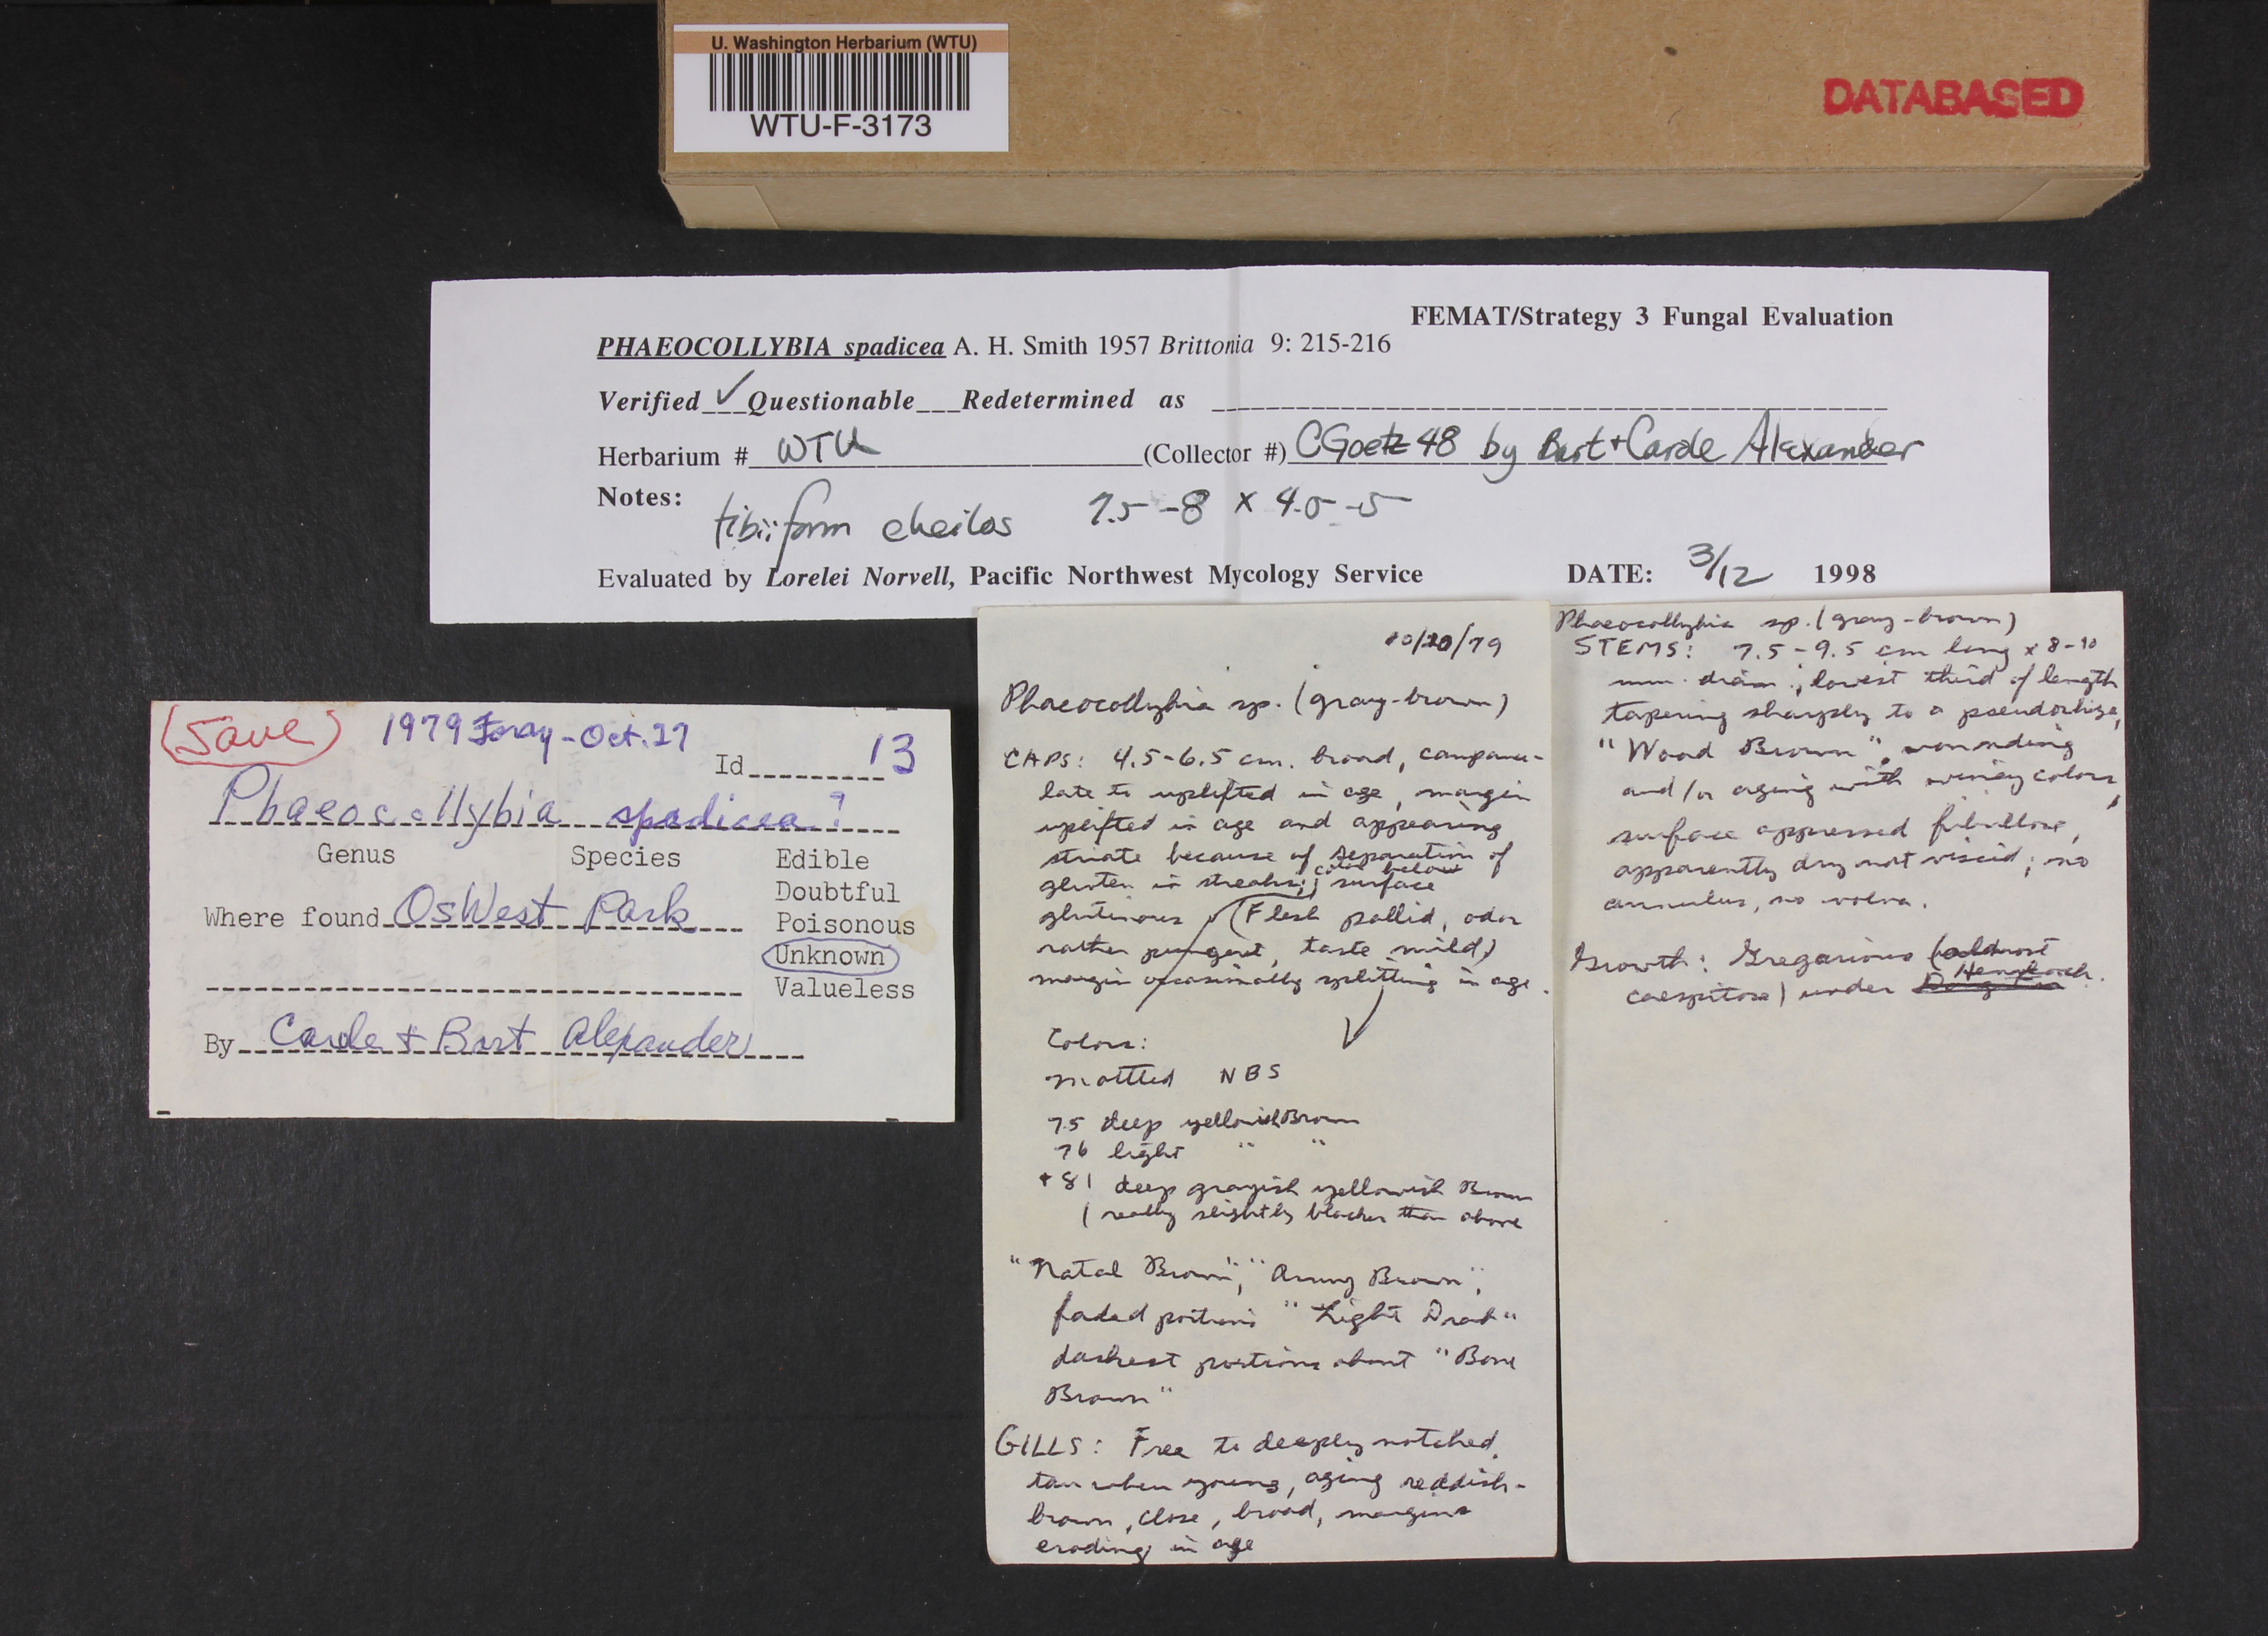 U. Washington Herbarium (WTU)
WTU-F-3173
DATABASED
FEMAT/Strategy 3 Fungal Evaluation
PHAEOCOLLYBIA spadicea A. H. Smith 1957 Brittonia 9: 215-216
Verified ✓ Questionable___Redetermined as
Herbarium # WTU (Collector #) CGoetz 48 by Bart + Carole Alexander
Notes: tibiiform cheilos 7.5-8 x 4.5-5
Evaluated by Lorelei Norvell, Pacific Northwest Mycology Service DATE: 3/12 1998
(Save) 1979 Foray - Oct. 27
Id 13
Phaeocollybia spadicea?
Genus Species Edible
Doubtful
Where found OsWest Park Poisonous
Unknown
Valueless
By Carole + Bart Alexander
10/20/79
Phaeocollybia sp. (gray-brown)
CAPS: 4.5-6.5 cm. broad, campanu-
late to uplifted in age, margin
uplifted in age and appearing
striate because of separation of
gluten in streaks; color below
surface
glutinous (Flesh pallid, odor
rather pungent, taste mild)
margin occasionally splitting in age.
Colors:
mottled NBS
75 deep yellowish Brown
76 light " "
+ 81 deep grayish yellowish Brown
(really slightly blacker than above
"Natal Brown", "Army Brown",
faded portions "Light Drab"
darkest portions about "Bone
Brown"
GILLS: Free to deeply notched,
tan when young, aging reddish-
brown, close, broad, margins
eroding in age
Phaeocollybia sp. (gray-brown)
STEMS: 7.5-9.5 cm long x 8-10
mm. diam.; lowest third of length
tapering sharply to a pseudorhiza,
"Wood Brown", wounding
and/or aging with winey colors,
surface appressed fibrillose,
apparently dry not viscid; no
annulus, no volva.
Growth: Gregarious (almost
caespitose) under